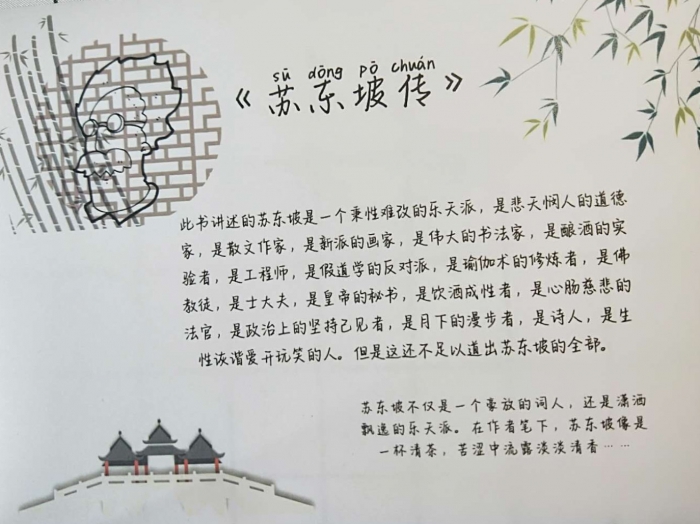 sū dōng pō chuán
《苏东坡传》
此书讲述的苏东坡是一个秉性难改的乐天派，是悲天悯人的道德
家，是散文作家，是新派的画家，是伟大的书法家，是酿酒的实
验者，是工程师，是假道学的反对派，是瑜伽术的修炼者，是佛
教徒，是士大夫，是皇帝的秘书，是饮酒成性者，是心肠慈悲的
法官，是政治上的坚持己见者，是月下的漫步者，是诗人，是生
性诙谐爱开玩笑的人。但是这还不足以道出苏东坡的全部。
苏东坡不仅是一个豪放的词人，还是潇洒
飘逸的乐天派。在作者笔下，苏东坡像是
一杯清茶，苦涩中流露淡淡清香……